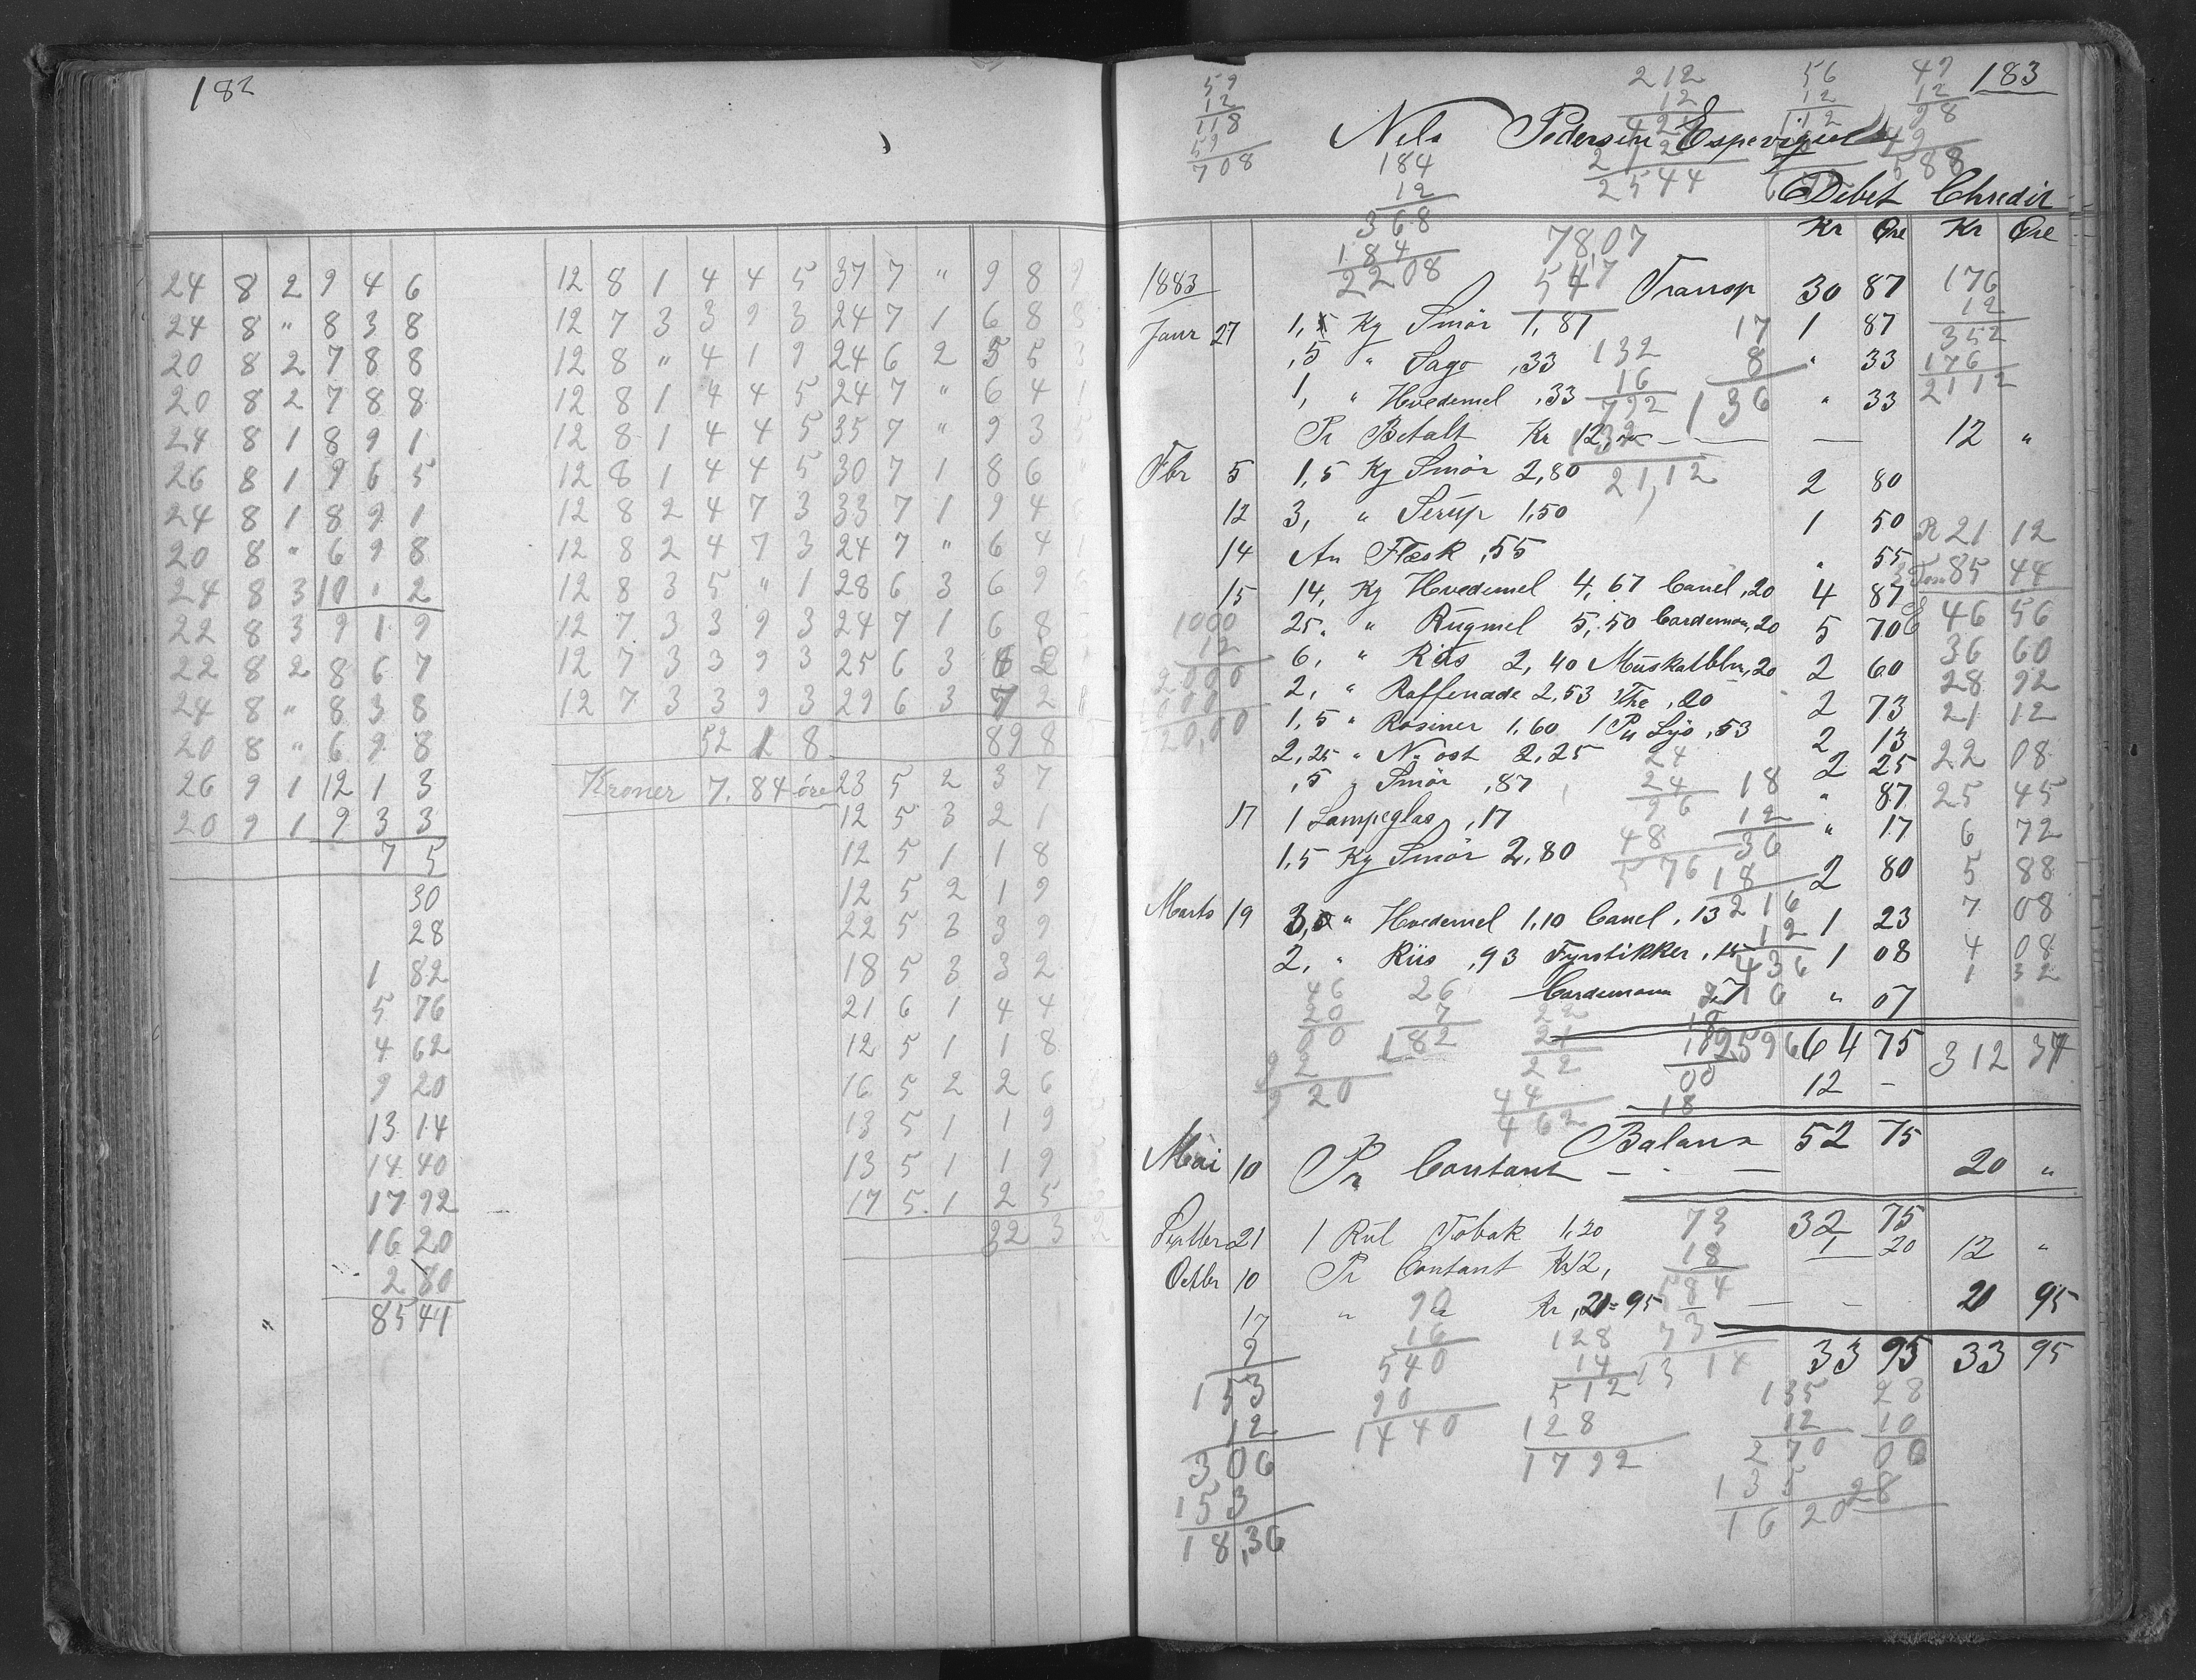 182
24 8 2 9 4 6
24 8 " 8 3 8
20 8 2 7 8 8
20 8 2 7 8 8
24 8 1 8 9 1
26 8 1 9 6 5
24 8 1 8 9 1
20 8 " 6 9 8
24 8 3 10 " 2
22 8 3 9 1 9
22 8 2 8 6 7
24 8 " 8 3 8
20 8 " 6 9 8
26 9 1 12 1 3
20 9 1 9 3 3
7 5
30
28
1 82
5 76
4 62
9 20
13 14
14 40
17 92
16 20
2 80
85 44
12 8 1 4 4 5 37 7 " 9 8 9
12 7 3 3 9 3 24 7 1 6 8 8
12 8 " 4 1 9 24 6 2 5 5 3
12 8 1 4 4 5 24 7 " 6 4 1
12 8 1 4 4 5 35 7 " 9 3 5
12 8 1 4 4 5 30 7 1 8 6 "
12 8 2 4 7 3 33 7 1 9 4 6
12 8 2 4 7 3 24 7 " 6 4 1
12 8 3 5 " 1 28 6 3 6 9 6
12 7 3 3 9 3 24 7 1 6 8
12 7 3 3 9 3 25 6 3 6 2
12 7 3 3 9 3 29 6 3 7 2 8
52 1 8 89 8
Kroner 7.84 öre 23 5 2 3 7
12 5 3 2 1
12 5 1 1 8
12 5 2 1 9
22 5 3 3 9
18 5 3 3 2
21 6 1 4 4
12 5 1 1 8
16 5 2 2 6
13 5 1 1 9
13 5 1 1 9
17 5 1 2 5
32 3 2
183
59
12
118
59
708
212
12
424
212
2544
56
12
112
49
12
98
49
588
Nils Pedersen Espevigen
184
12
368
184
2208
Debet Chredit
Kr Øre Kr Øre
78,07
547
1883 Transp 30 87
176
12
352
176
2112
Janr 27 1, Kg Smör 1,87 1 87
,5 " Sago ,33 " 33
1, " Hvedemel ,33 " 33
132
16
792
132
21,12
17
8
136
Pr Betalt Kr 12,00 — — — 12 "
Fbr 5 1,5 Kg Smör 2,80 2 80
12 3, " Serup 1,50 1 50
14 An Flæsk ,55 " 55
15 14, Kg Hvedemel 4,67 Canel ,20 4 87
25, " Rugmel 5,50 Cardemom ,20 5 70
6, " Riis 2,40 Muskatblm ,20 2 60
2, " Raffenade 2,53 The ,20 2 73
1,5 " Rosiner 1,60 1 Pu Lys ,53 2 13
2,25 " N. ost 2,25 2 25
,5 " Smör ,87 " 87
17 1 Lampeglas ,17 " 17
1,5 Kg Smör 2,80 2 80
Marts 19 3, " Hvedemel 1,10 Canel ,13 1 23
2, " Riis ,93 Fyrstikker ,15 1 08
Cardemomm ,7 " 07
1000
12
2000
1000
120,00
R 21 12
85 44
46 56
36 60
28 92
21 12
22 08
25 45
6 72
5 88
7 08
4 08
1 32
312 37
24
24
96
48
576
18
12
36
18
216
12
436
216
2596
46
20
00
92
9 20
26
7
182
22
21
22
44
462
18
18
00
18
64 75
12 -
Balans 52 75
Mai 10 Pr Contant — - — 20 "
32 75
Septbr 21 1 Rul Tobak 1,20 1 20
Octbr 10 Pr Contant Kr 12, 12 "
17 " " Kr ,21=95 — — - 21 95
33 95 33 95
73
18
584
73
13 14
9
153
12
306
153
18,36
90
16
540
90
1440
128
14
512
128
1792
135
12
270
135
1620
28
10
00
28